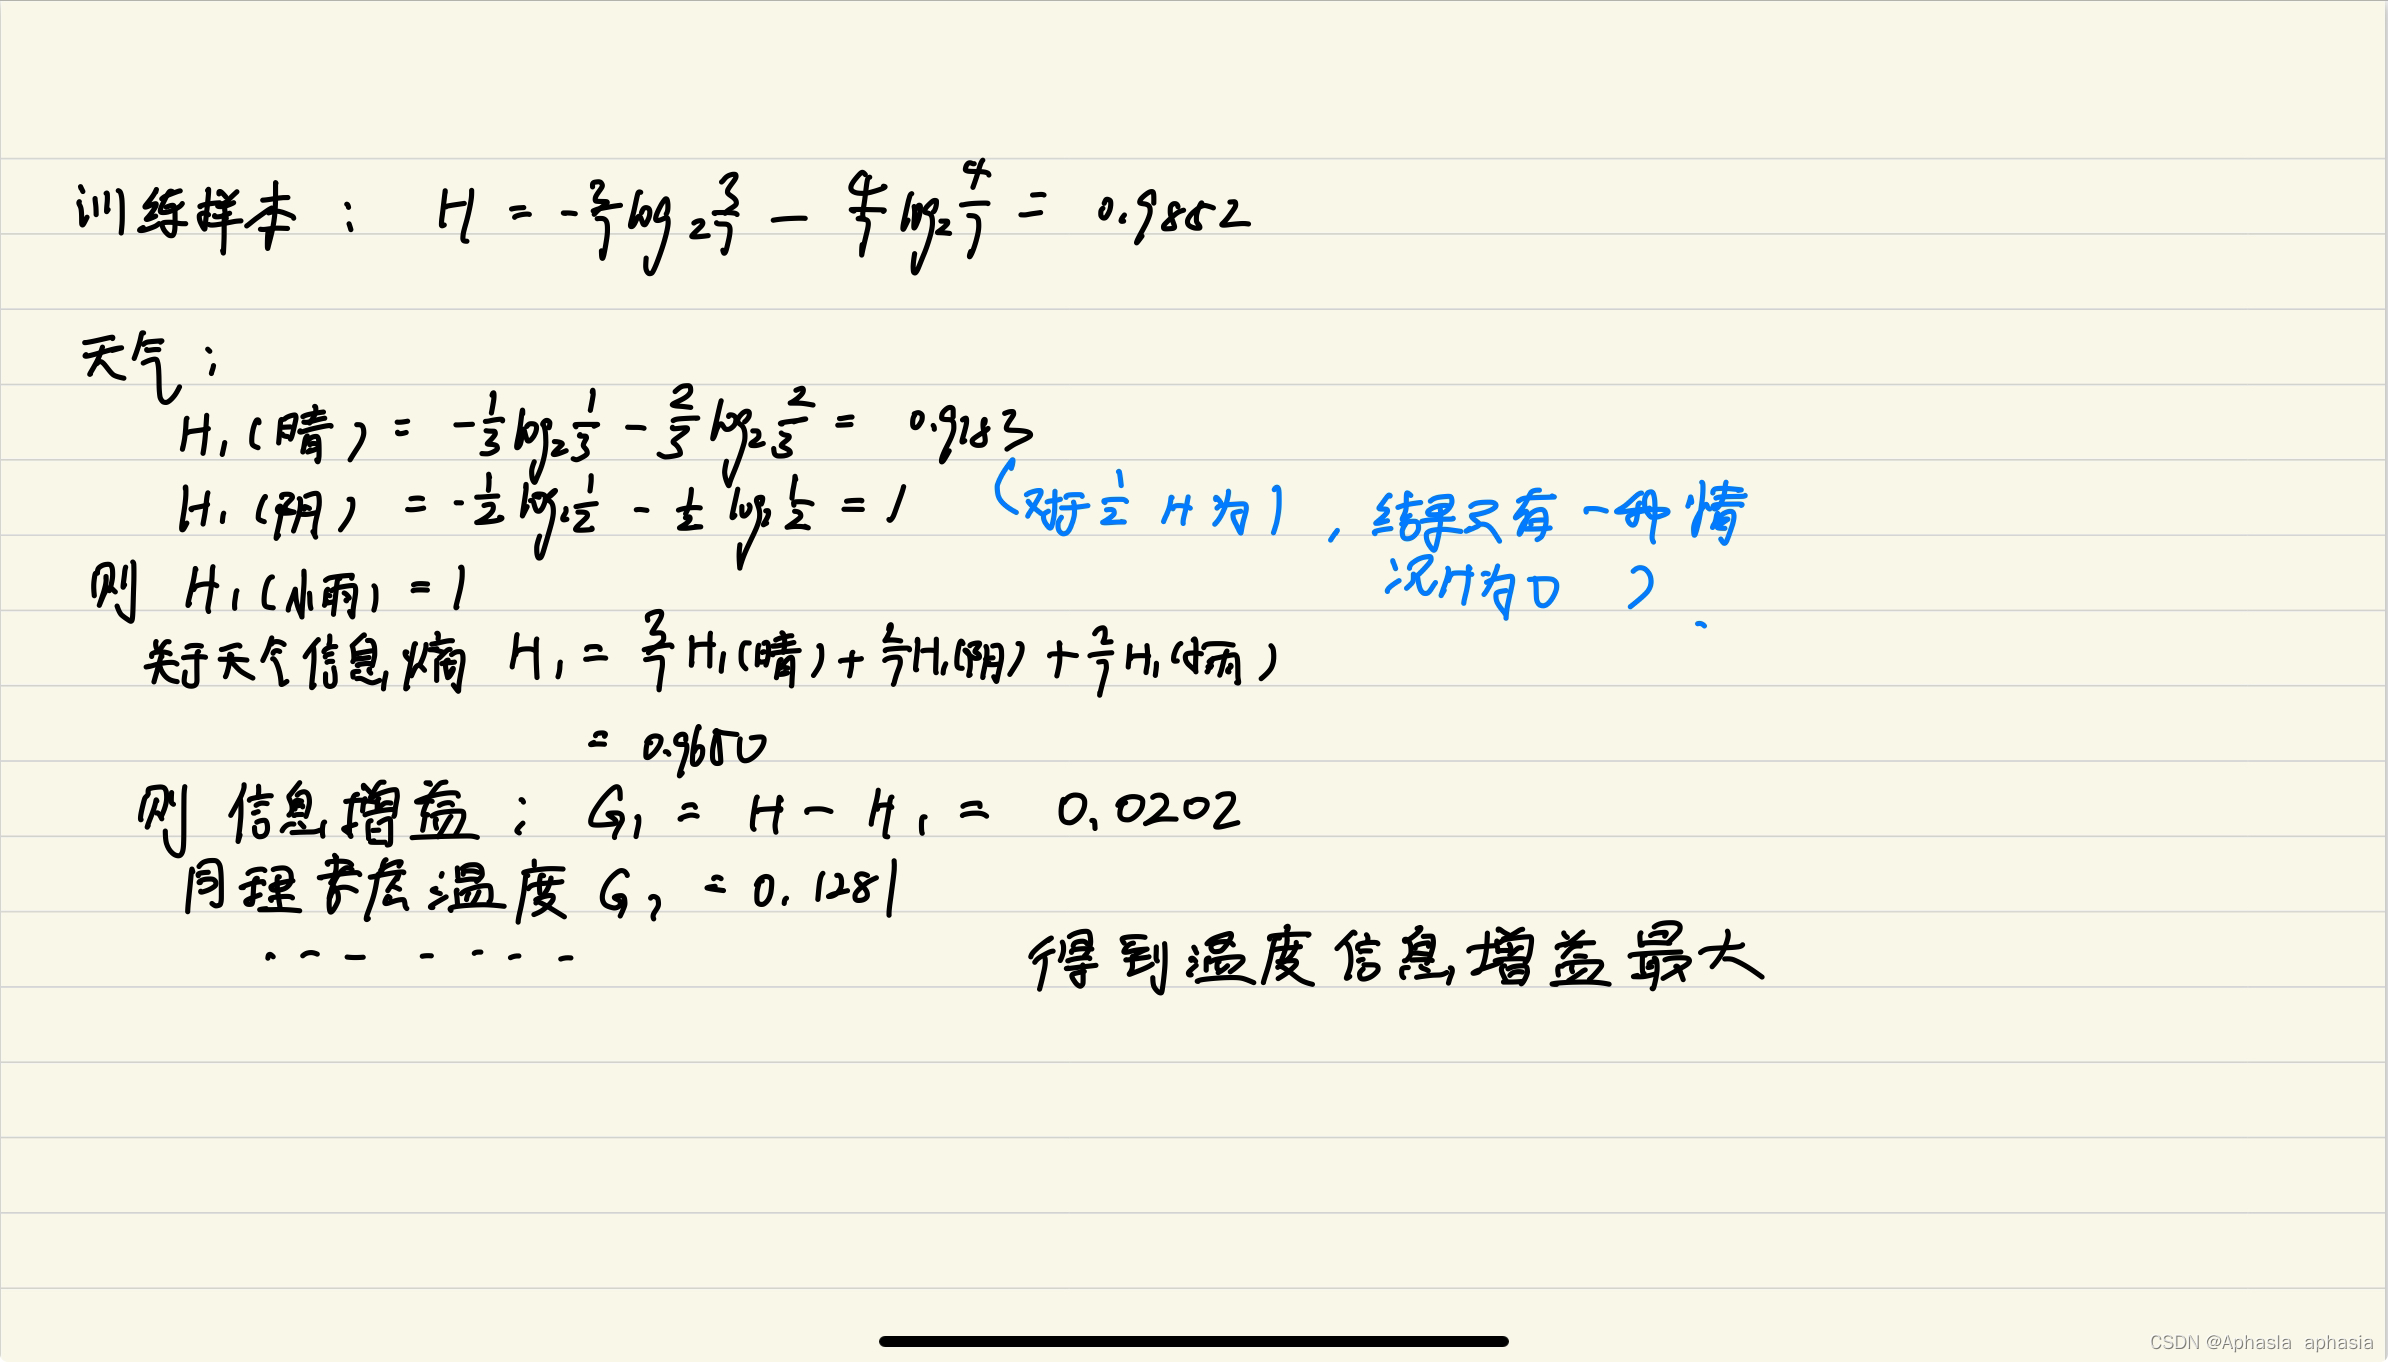 训练样本： H = -3/7 log₂ 3/7 - 4/7 log₂ 4/7 = 0.9852
天气：
H₁(晴) = -1/3 log₂ 1/3 - 2/3 log₂ 2/3 = 0.9183
H₁(阴) = -1/2 log₂ 1/2 - 1/2 log₂ 1/2 = 1 (对于1/2 H为1，结果只有一种情
况H为0)
则 H₁(小雨) = 1
关于天气信息熵 H₁ = 3/7 H₁(晴) + 2/7 H₁(阴) + 2/7 H₁(小雨)
= 0.9650
则 信息增益： G₁ = H - H₁ = 0.0202
同理考虑温度 G₂ = 0.1281
.......
得到温度信息增益最大
CSDN @Aphasia aphasia